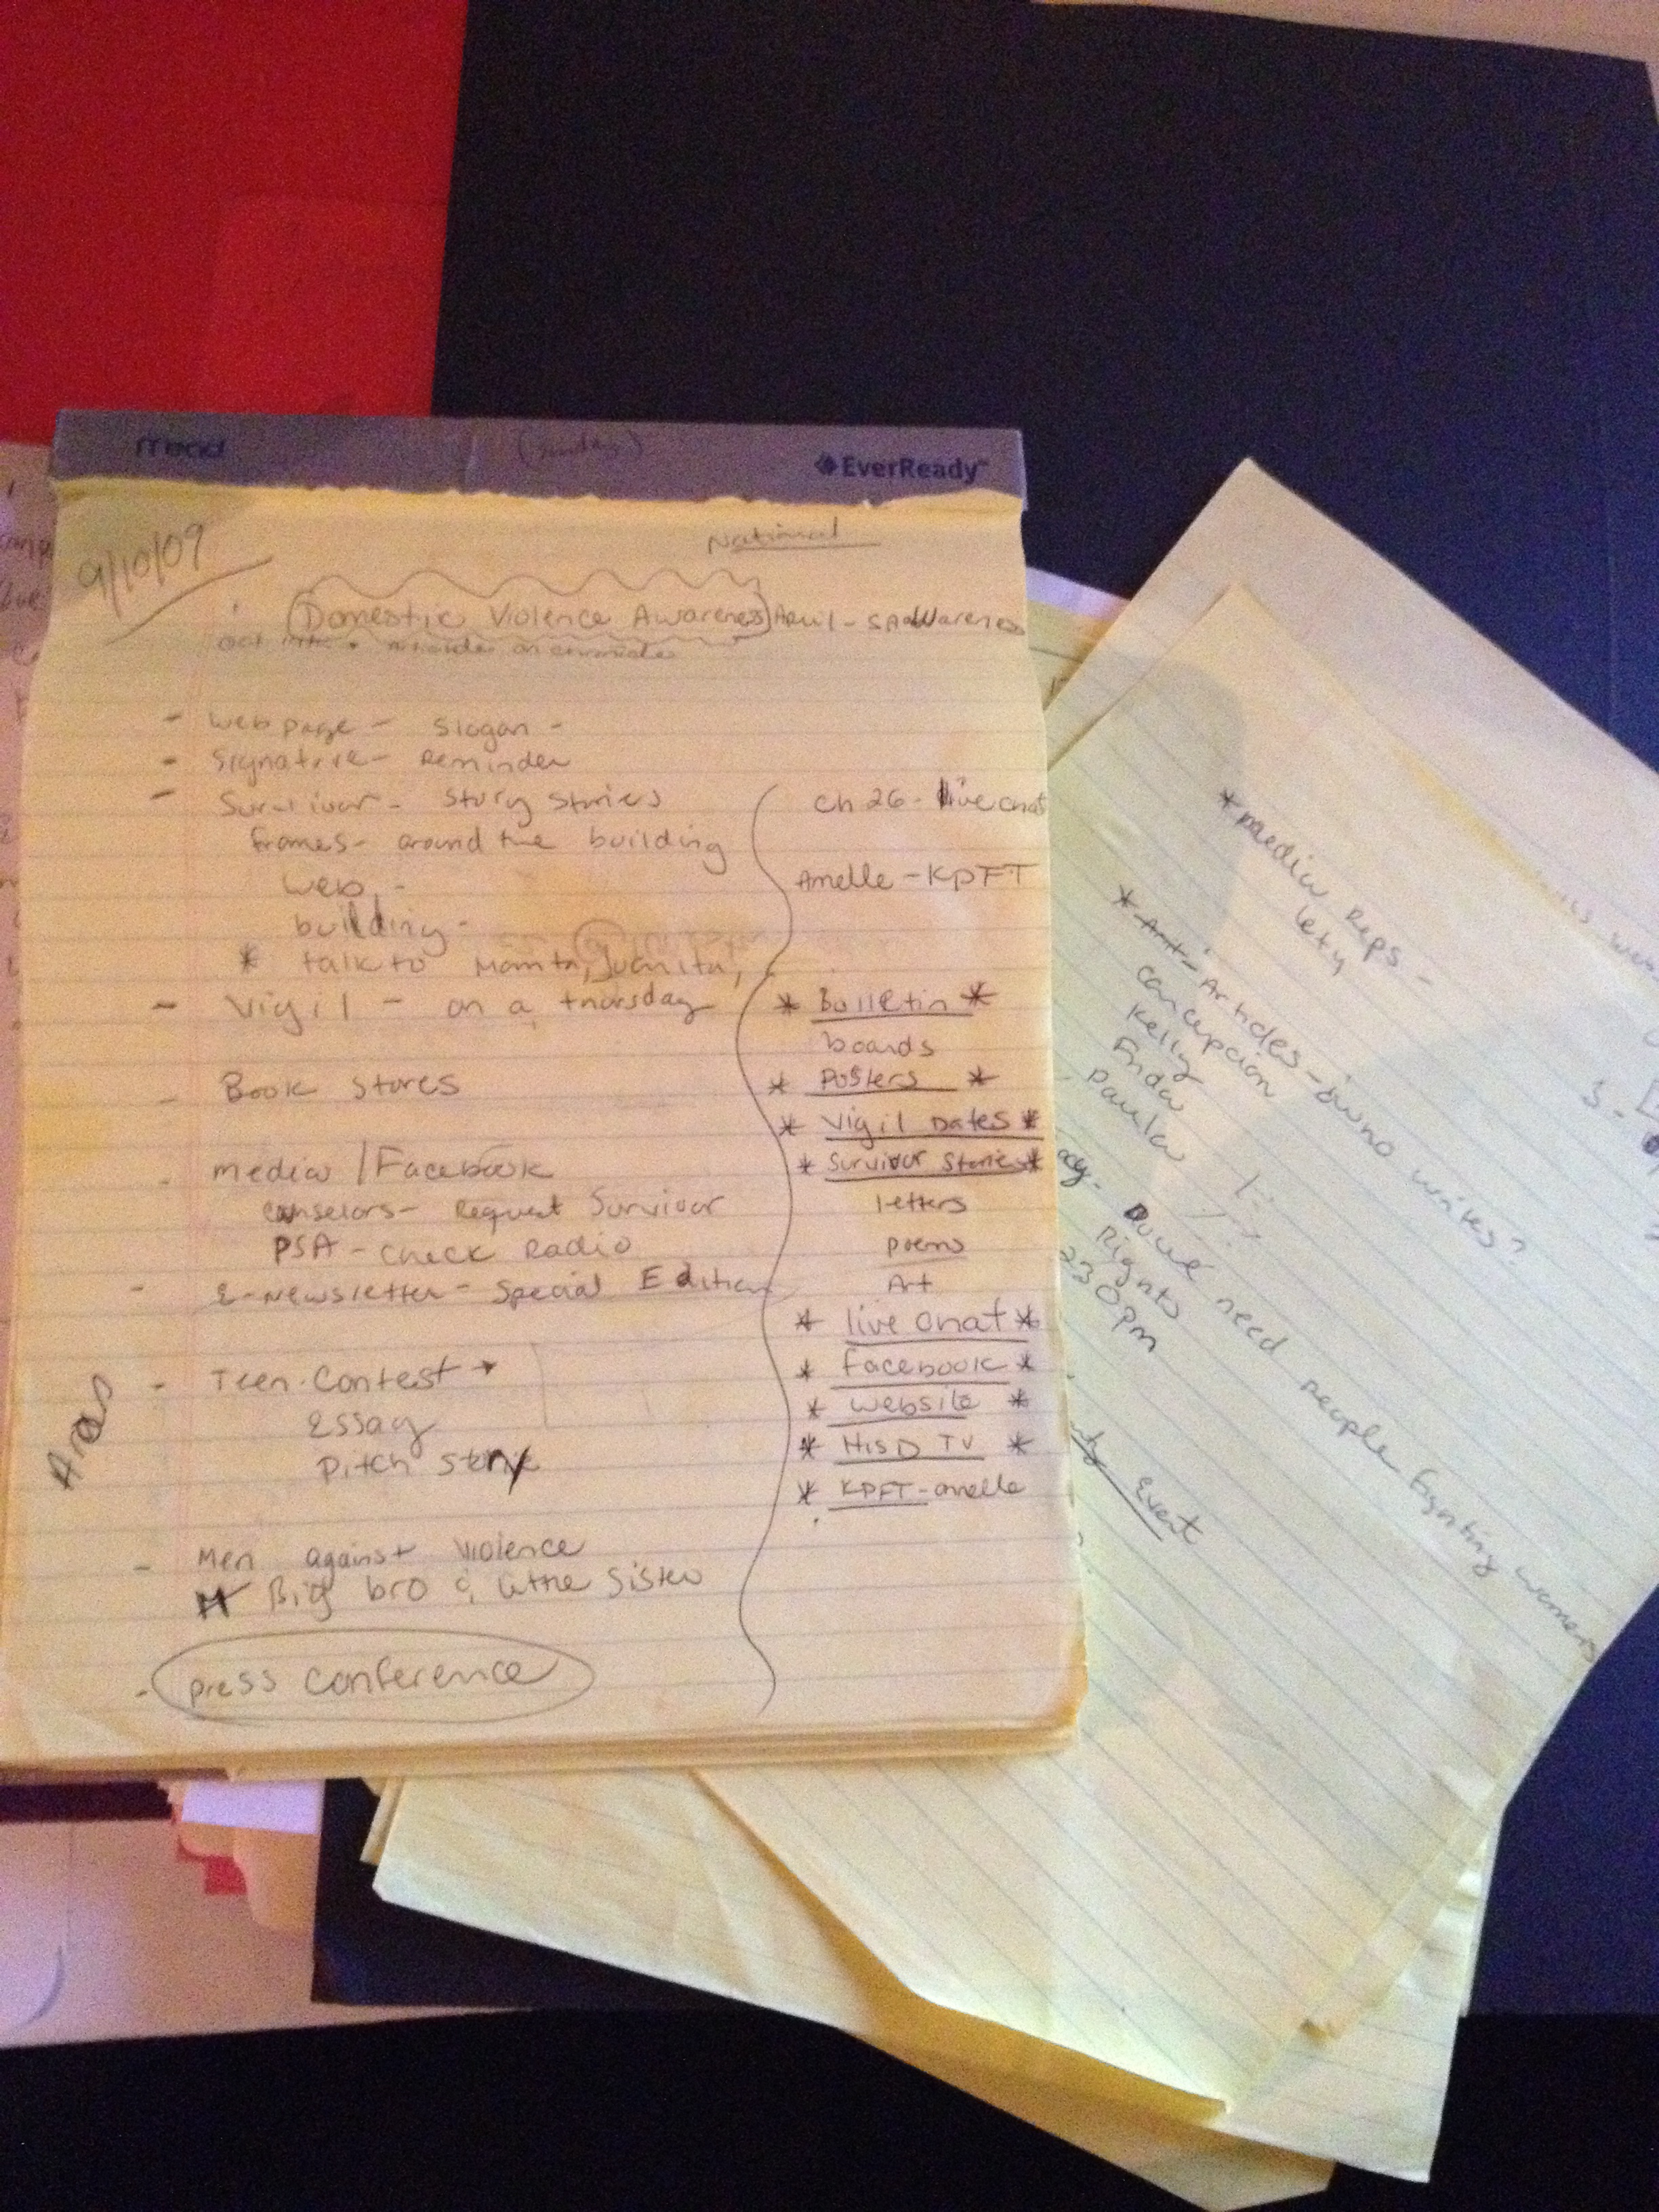 mead
EverReady™
9/10/09
National
Domestic Violence Awareness April - SA Awareness
- Web page - Slogan -
- Signature - Reminder
- Survivor - Story Stories
frames - around the building
Web -
building -
* talk to Juanita,
- Vigil - on a thursday
- Book Stores
- media / Facebook
counselors - Request Survivor
PSA - check Radio
- E-newsletter - Special Edition
- Teen Contest
Essay
Pitch
- Men against violence
Big bro & little Sister
- press conference
ch 26 - live chat
Amelle - KPFT
* Bulletin *
boards
* Posters *
* Vigil Dates *
* Survivor Stories *
letters
poems
Art
* live chat *
* facebook *
* website *
* HISD TV *
* KPFT - amelle
* media Reps. -
lety
* Art - Articles - who writes?
concepcion
Kelly
Frida
Paula
need people fighting womens
Rights
230pm
Event